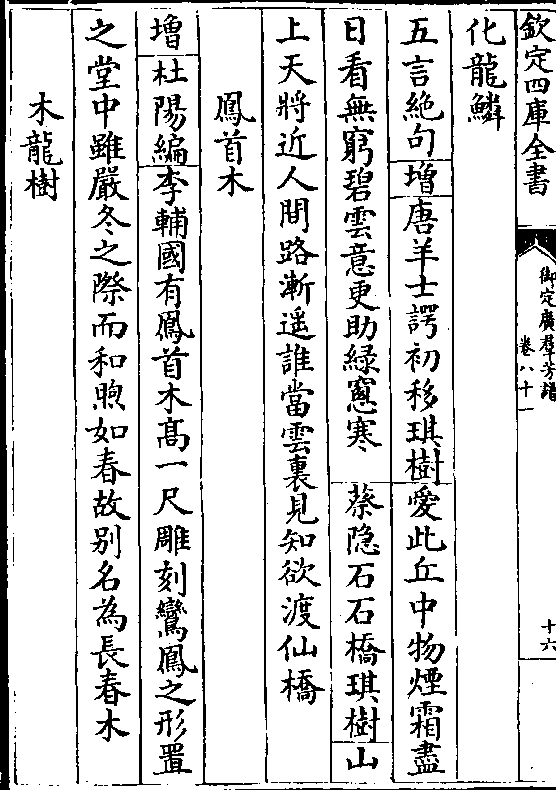 欽定四庫全書
御定廣羣芳譜
卷八十一
十六
化龍鱗
五言絶句増唐羊士諤初移琪樹愛此丘中物煙霜盡
日看無窮碧雲意更助緑窻寒 蔡隐石石橋琪樹山
上天將近人間路漸遥誰當雲裏見知欲渡仙橋
鳳首木
増杜陽編李輔國有鳳首木髙一尺雕刻鸞鳳之形置
之堂中雖嚴冬之際而和煦如春故别名為長春木
木龍樹